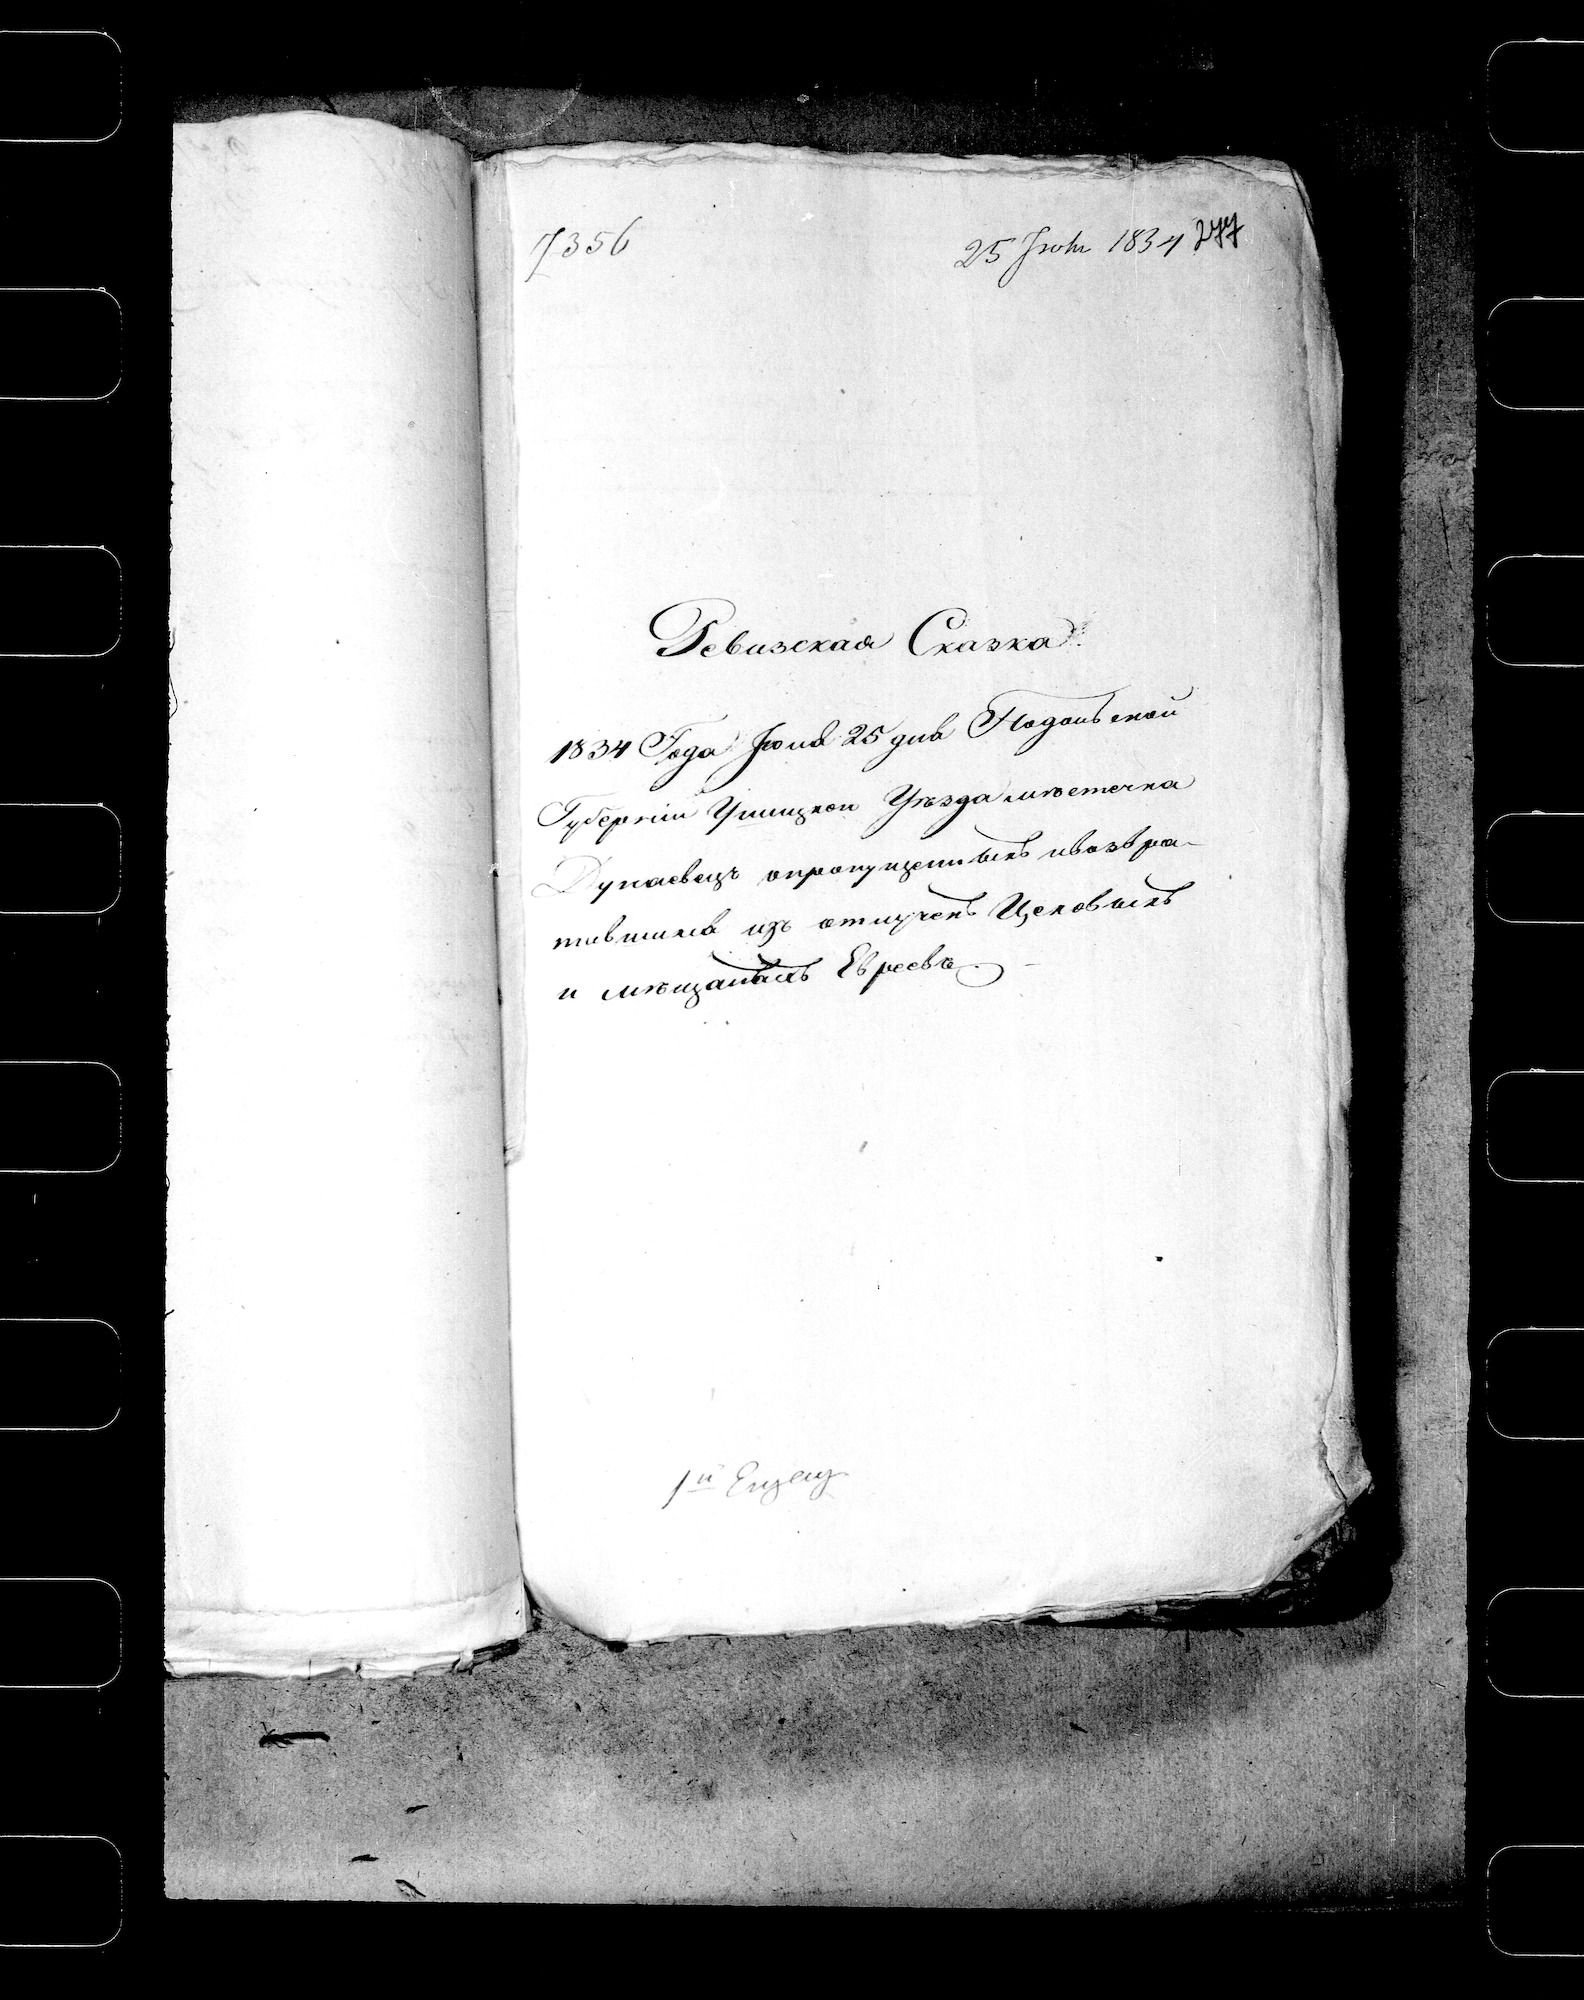 7356
25 Іюня 1834 277
Ревизская Сказка
1834 Года Іюня 25 дня Подольской
Губерніи Ушицкои Уѣзда мѣстечка
Дунаевецъ опропущенныхъ ивозвра-
тившихся изъ отлучекъ Цеховыхъ
и мѣщаныхъ Евреевъ
1й